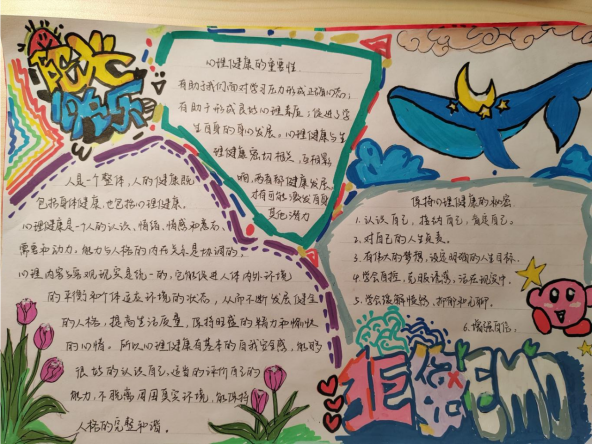 阳光
心理健康的重要性
有助于我们面对学习压力形成正确心态;
有助于形成良好心理素质;促进学
生自身的身心发展。心理健康与生
理健康密切相关,互相影
响,两者都健康发展,
才有可能激发自身
其他潜力
人是一个整体,人的健康既
包括身体健康,也包括心理健康。
心理健康是个人的认识、情绪、情感和意志、
需要和动力、能力与人格的内在关系是协调的,
心理内容与客观现实是统一的,它能促进人体内外环境
的平衡和个体适应环境的状态,从而不断发展健全
的人格,提高生活质量,保持旺盛的精力和愉快
的心情。所以心理健康有基本的自我安全感,能够
很好的认识自己,适当的评价自己的
能力,不脱离周围真实环境,能保持
人格的完整和谐。
保持心理健康的秘密
1.认识自己,接纳自己,肯定自己。
2.对自己的人生负责。
3.有伟大的梦想,设定明确的人生目标。
4.学会自控,克服诱惑,活在现实中。
5.学会缓解愤怒,抑郁和无聊。
6.增强自信。
拒绝EMO